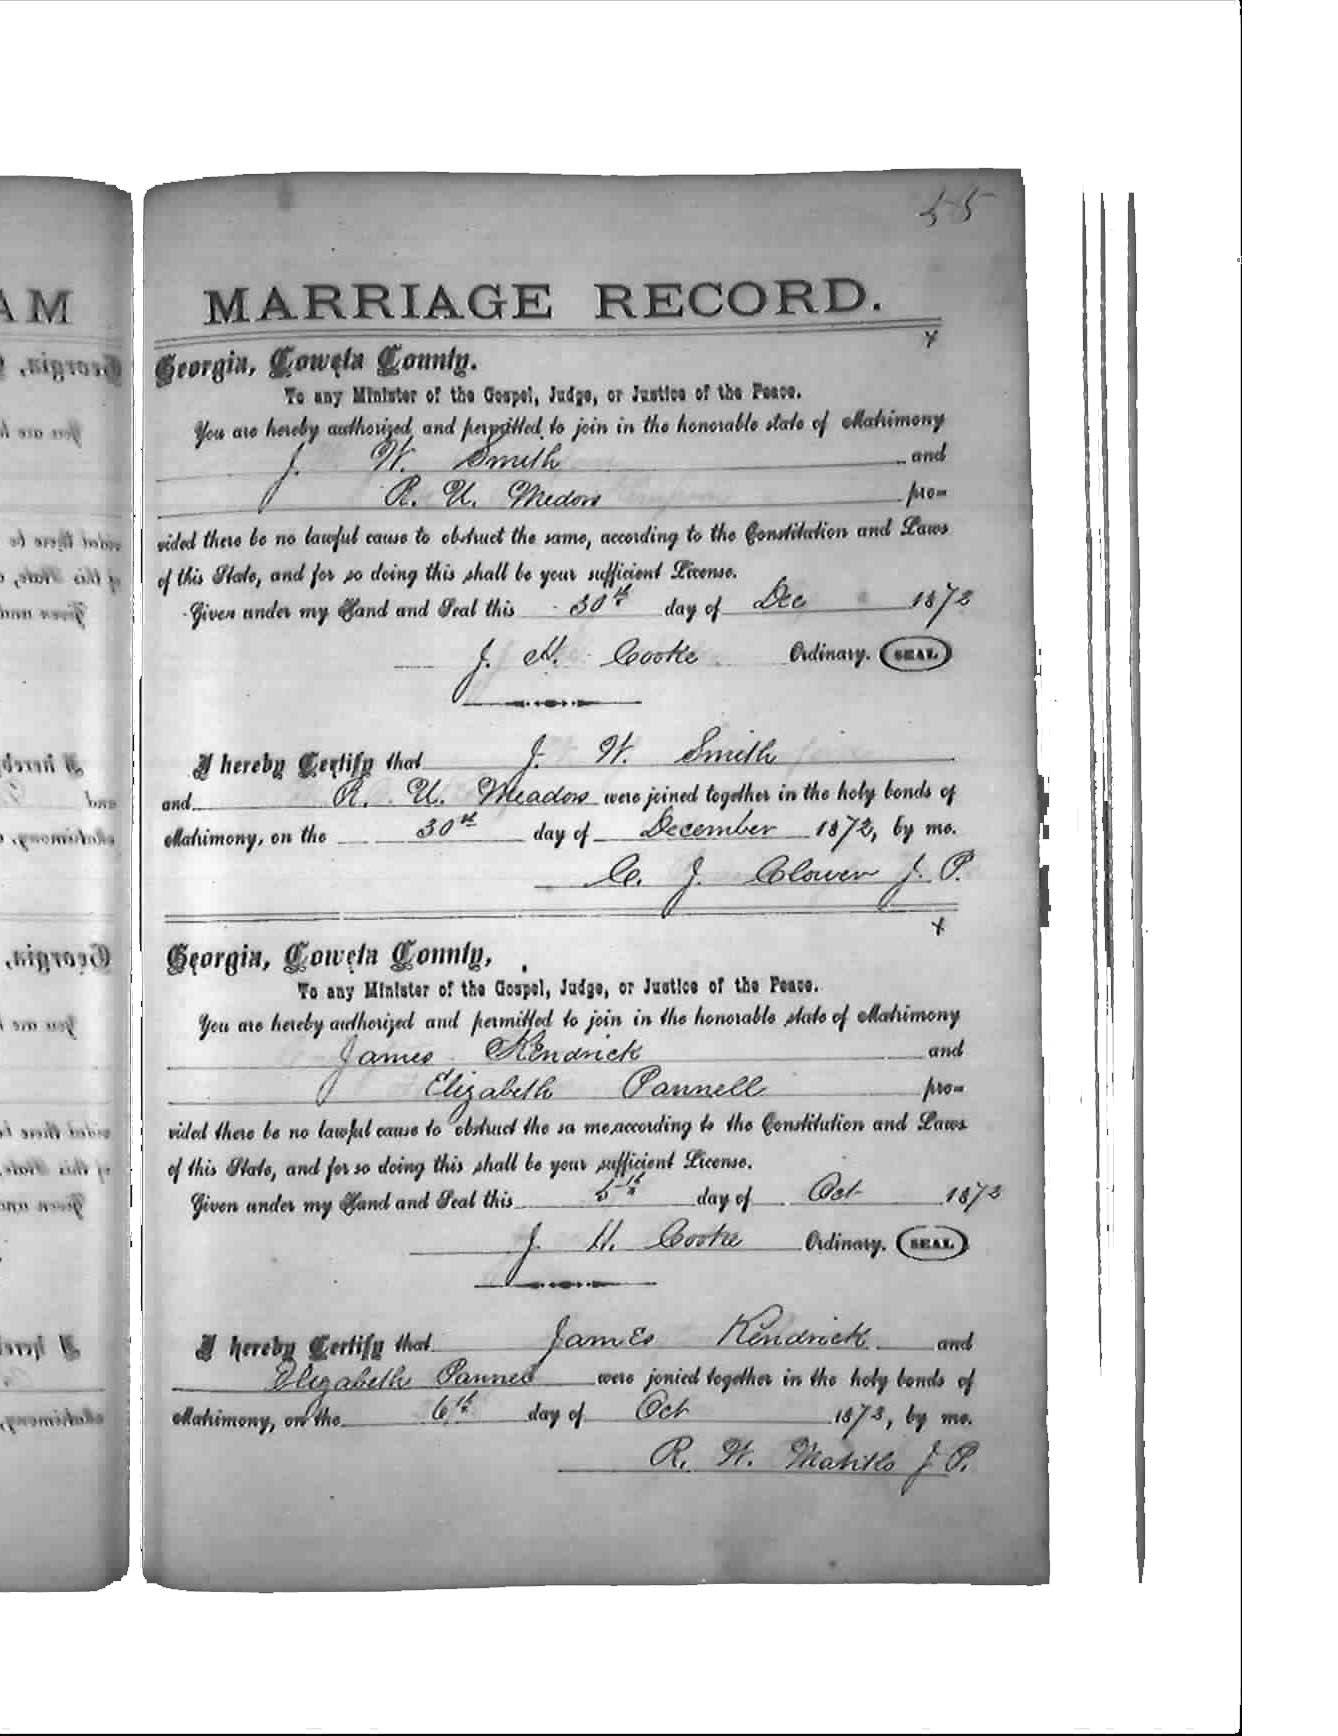 55
AM
MARRIAGE RECORD.
x
Georgia, Coweta County.
To any Minister of the Gospel, Judge, or Justice of the Peace.
You are hereby authorized and permitted to join in the honorable state of Matrimony
J. W. Smith and
R. U. Medow pro-
vided there be no lawful cause to obstruct the same, according to the Constitution and Laws
of this State, and for so doing this shall be your sufficient License.
Given under my Hand and Seal this 30th day of Dec 1872
J. H. Cooke Ordinary. SEAL
I hereby Certify that J. W. Smith
and R. U. Meadow were joined together in the holy bonds of
Matrimony, on the 30th day of December 1872, by me.
C. J. Clower J. P.
x
Georgia, Coweta County,
To any Minister of the Gospel, Judge, or Justice of the Peace.
You are hereby authorized and permitted to join in the honorable state of Matrimony
James Kendrick and
Elizabeth Pannell pro-
vided there be no lawful cause to obstruct the sa me, according to the Constitution and Laws
of this State, and for so doing this shall be your sufficient License.
Given under my Hand and Seal this 5th day of Oct 1872
J. H. Cooke Ordinary. SEAL
I hereby Certify that James Kendrick and
Elizabeth Pannel were jonied together in the holy bonds of
Matrimony, on the 6th day of Oct 1873, by me.
R. W. J. P.